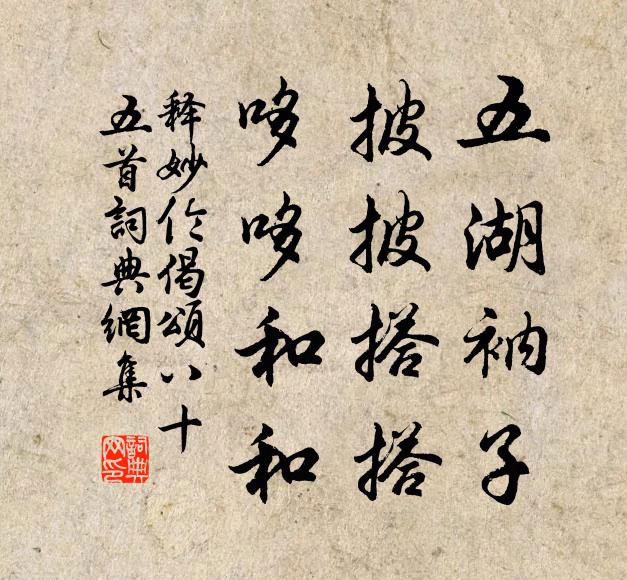 五湖衲子
披披搭搭
哆哆和和
释妙伦偈頌八十
五首詞典網集
詞典网印